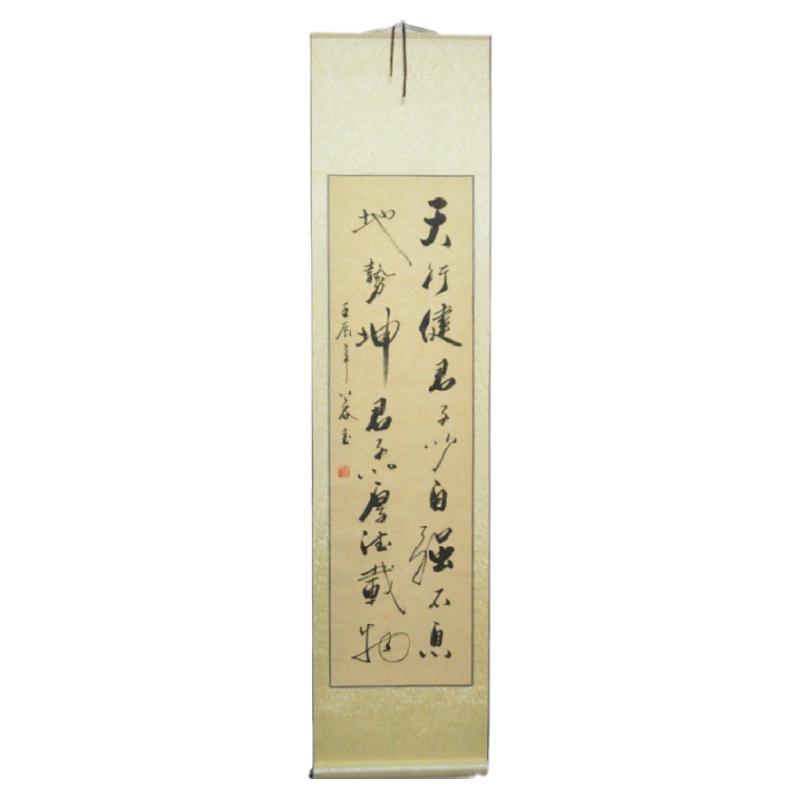 天行健君子以自强不息
地勢坤君子以厚德載物
壬辰年